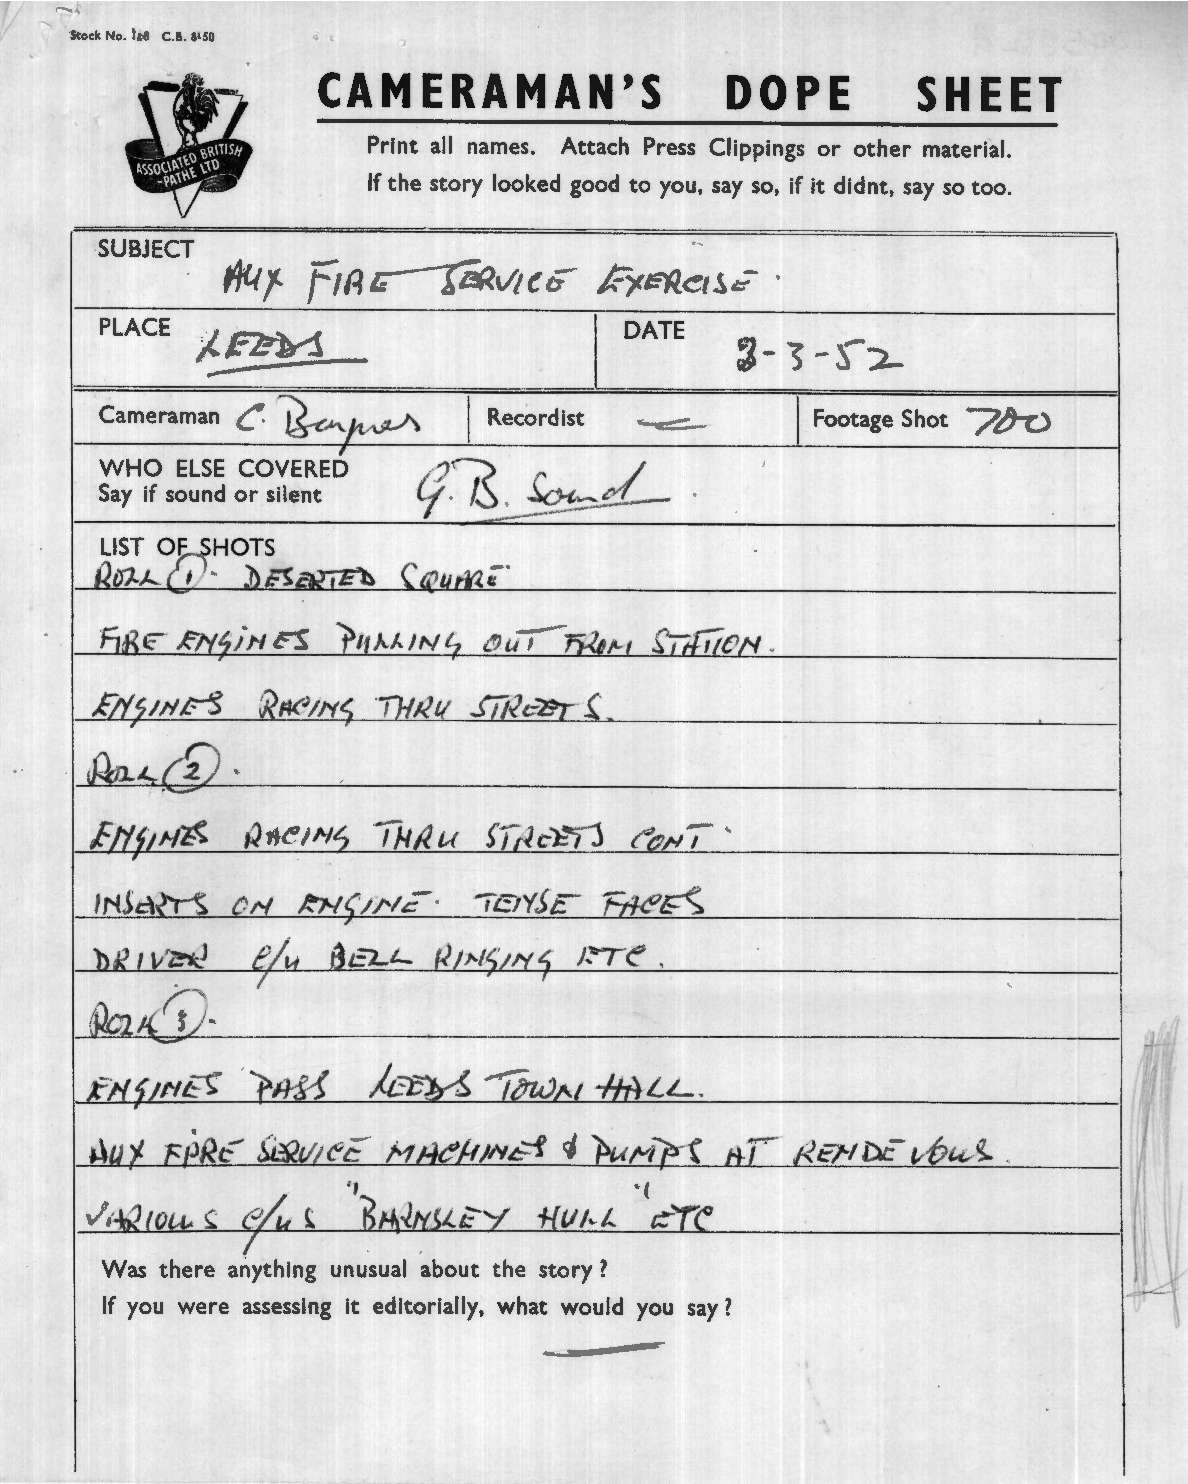 Stock No. 128 C.B. 8'50
CAMERAMAN'S DOPE SHEET
ASSOCIATED BRITISH
-PATHE LTD
Print all names. Attach Press Clippings or other material.
If the story looked good to you, say so, if it didnt, say so too.
SUBJECT
AUX FIRE SERVICE EXERCISE.
PLACE LEEDS DATE 3-3-52
Cameraman C. Baynes Recordist — Footage Shot 700
WHO ELSE COVERED
Say if sound or silent G.B. Sound.
LIST OF SHOTS
ROLL 1. DESERTED SQUARE
FIRE ENGINES PULLING OUT FROM STATION.
ENGINES RACING THRU STREETS.
ROLL 2.
ENGINES RACING THRU STREETS CONT.
INSERTS ON ENGINE. TENSE FACES
DRIVER C/U BELL RINGING ETC.
ROLL 3.
ENGINES PASS LEEDS TOWN HALL.
AUX FIRE SERVICE MACHINES & PUMPS AT RENDEVOUS.
VARIOUS C/US "BARNSLEY HULL" ETC
Was there anything unusual about the story?
If you were assessing it editorially, what would you say?
—